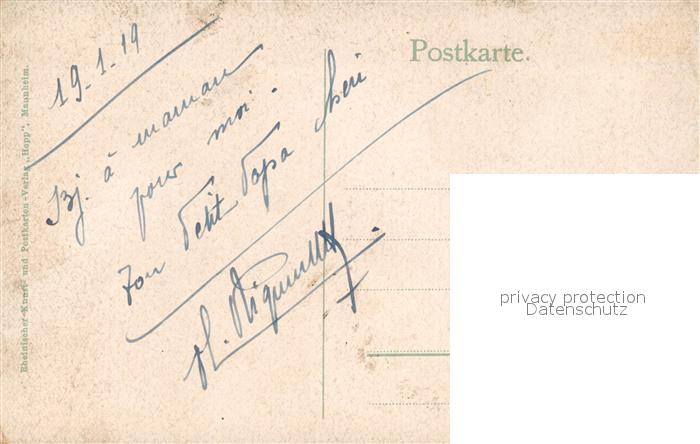 Postkarte.
19-1-19
Bj. à maman
pour moi.
Ton Petit Papa chéri
Rheinischer-Kunst- und Postkarten-Verlag „Hopp", Mannheim.
privacy protection
Datenschutz